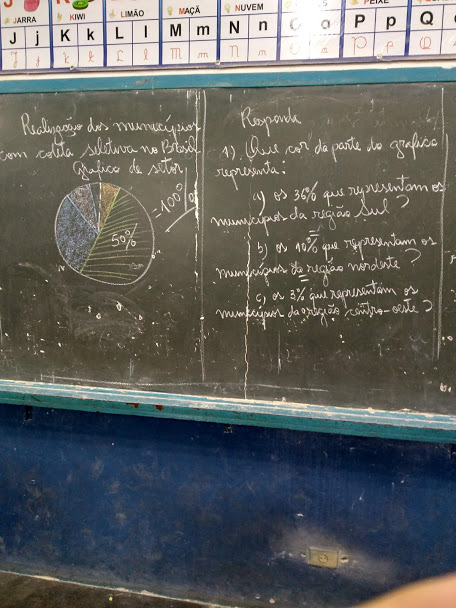 J
K
JARRA
KIWI
LIMÃO
MAÇÃ
NUVEM
PEIXE
J j
K k
L l
M m
N n
O o
P p
Q
Realização dos municípios
com coleta seletiva no Brasil
Gráfico de setor
50%
=100%
Responda
1). Que cor da parte do grafico
representa:
a) os 36% que representam os
municípios da região Sul?
b) os 10% que representam os
municípios da região nordeste?
c) os 3% que representam os
municípios da região centro-oeste?